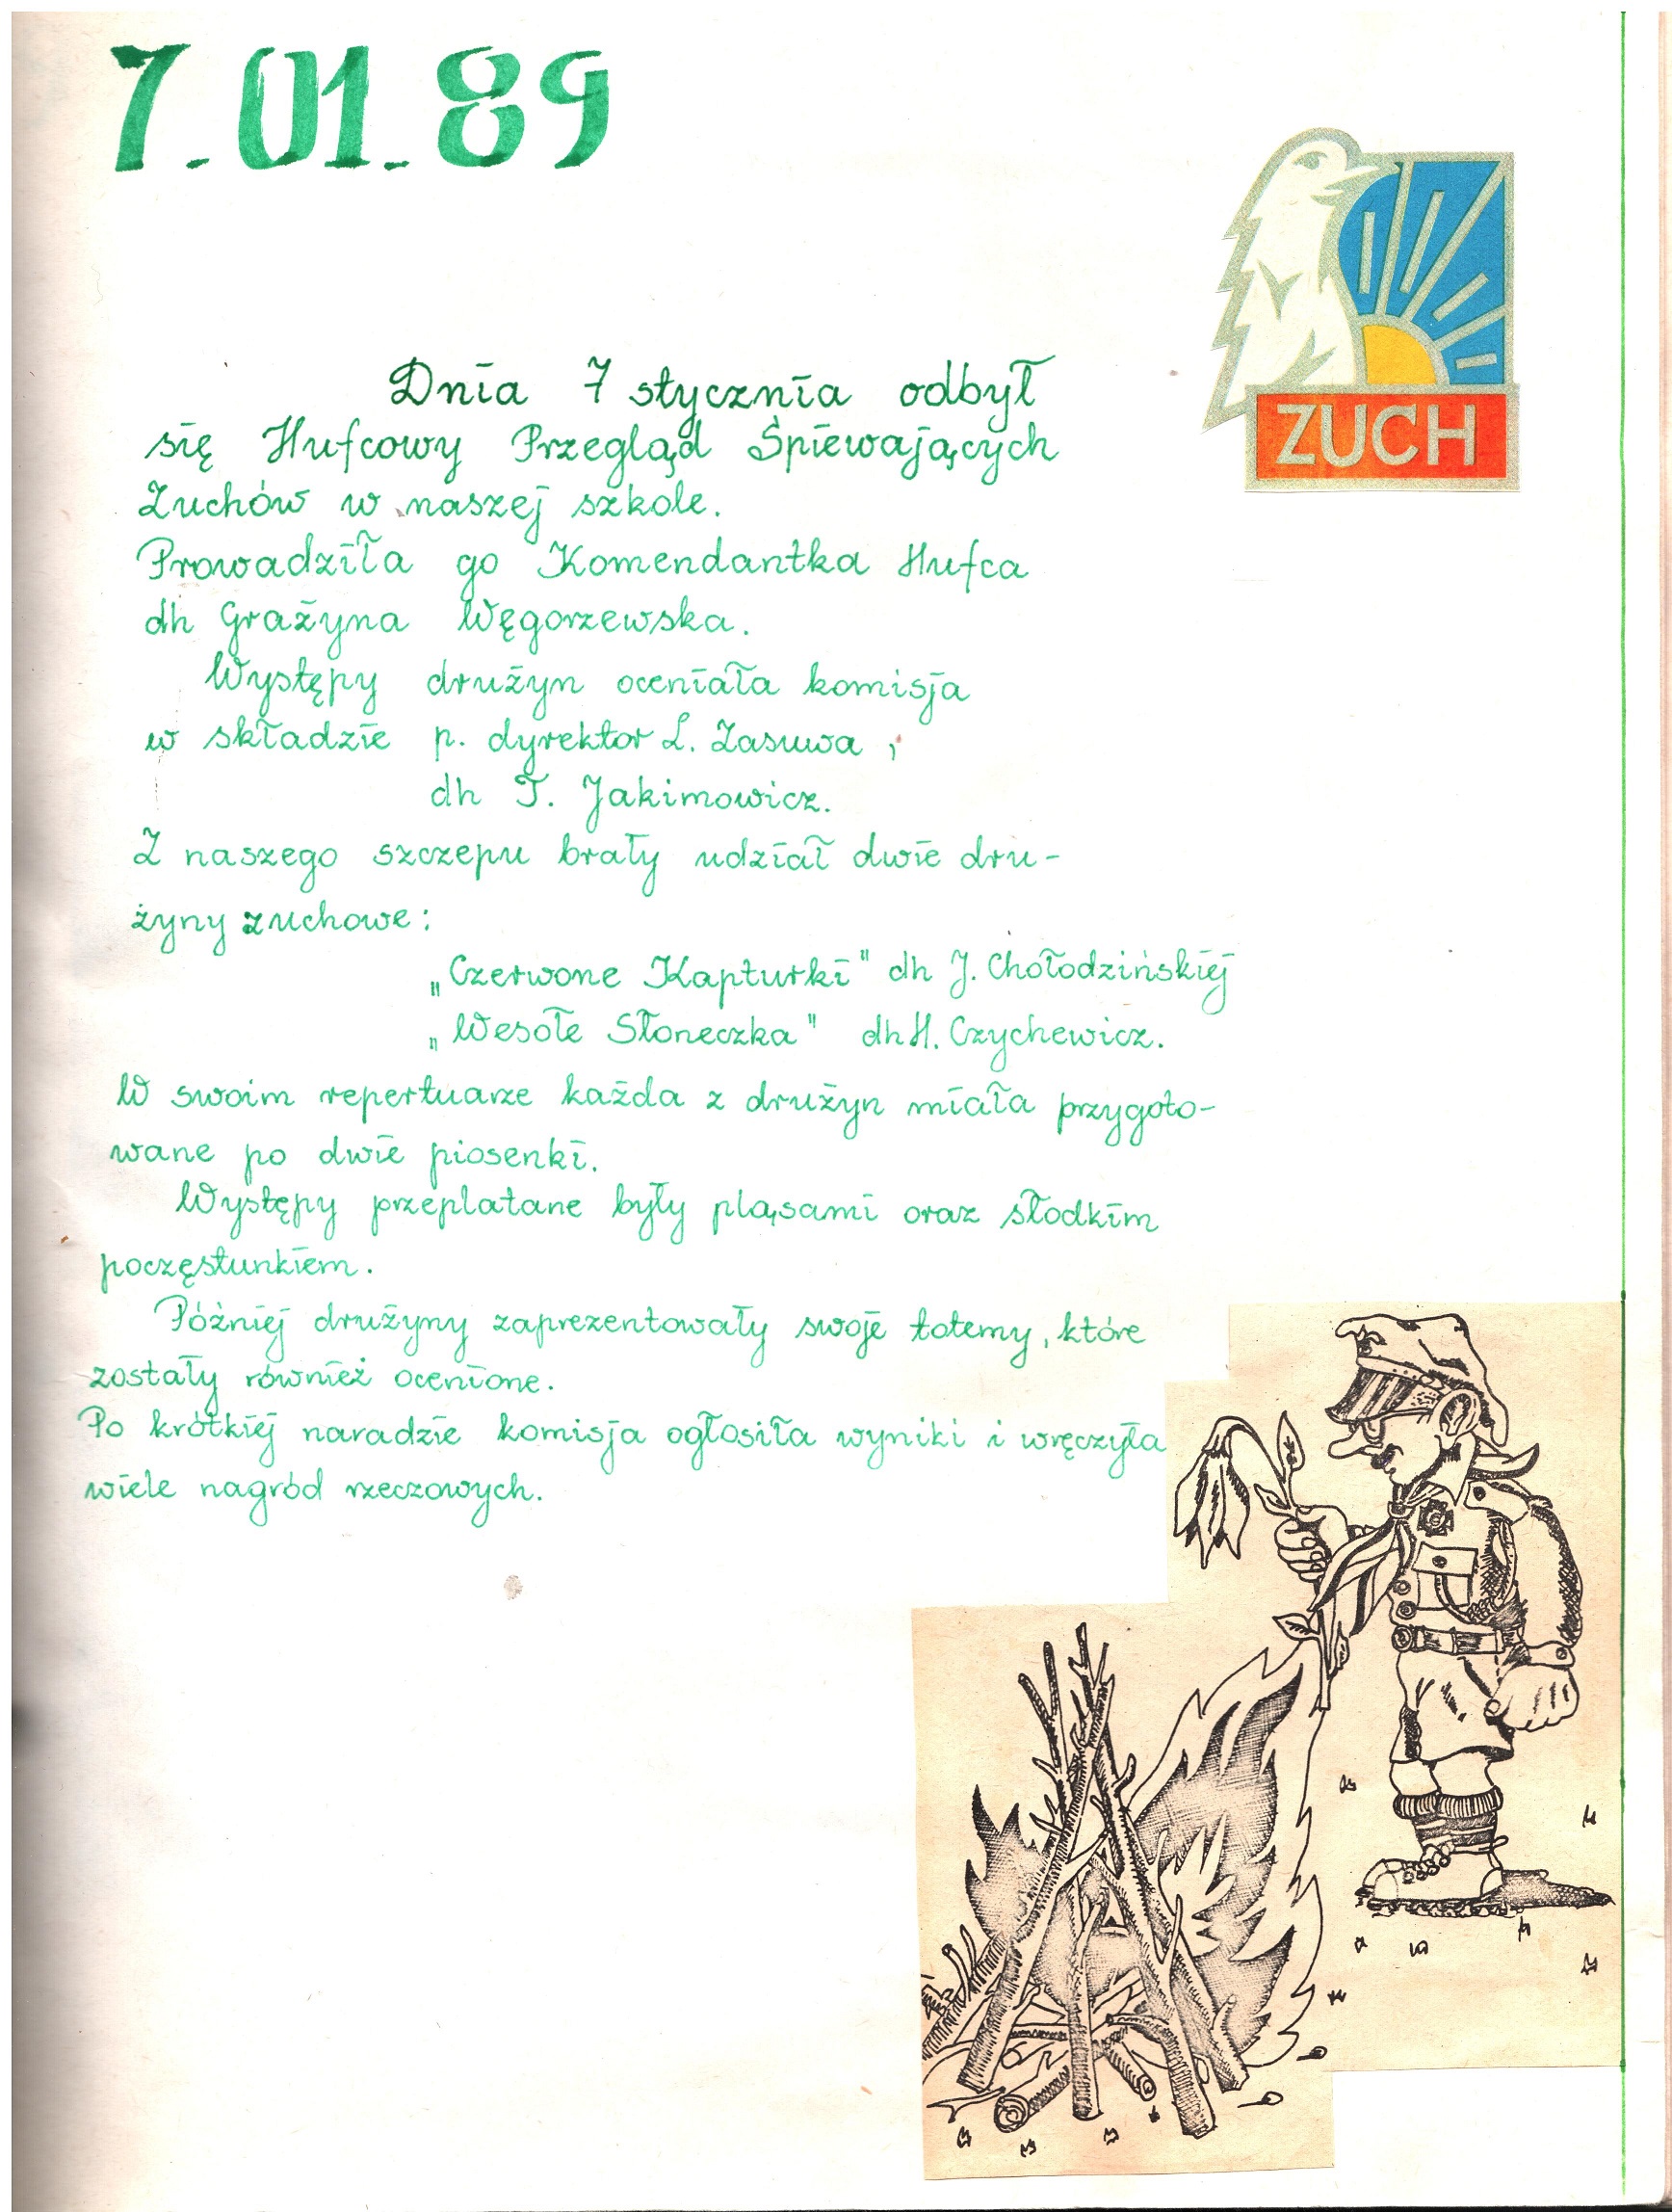 7.01.89
ZUCH
Dnia 7 stycznia odbył
się Hufcowy Przegląd Śpiewających
Zuchów w naszej szkole.
Prowadziła go Komendantka Hufca
dh Grażyna Węgorzewska.
Występy drużyn oceniała komisja
w składzie p. dyrektor L. Zasuwa,
dh T. Jakimowicz.
Z naszego szczepu brały udział dwie dru-
żyny zuchowe:
„Czerwone Kapturki" dh J. Chołodzińskiej
„Wesołe Słoneczka" dh H. Czychewicz.
W swoim repertuarze każda z drużyn miała przygoto-
wane po dwie piosenki.
Występy przeplatane były pląsami oraz słodkim
poczęstunkiem.
Później drużyny zaprezentowały swoje totemy, które
zostały również ocenione.
Po krótkiej naradzie komisja ogłosiła wyniki i wręczyła
wiele nagród rzeczowych.